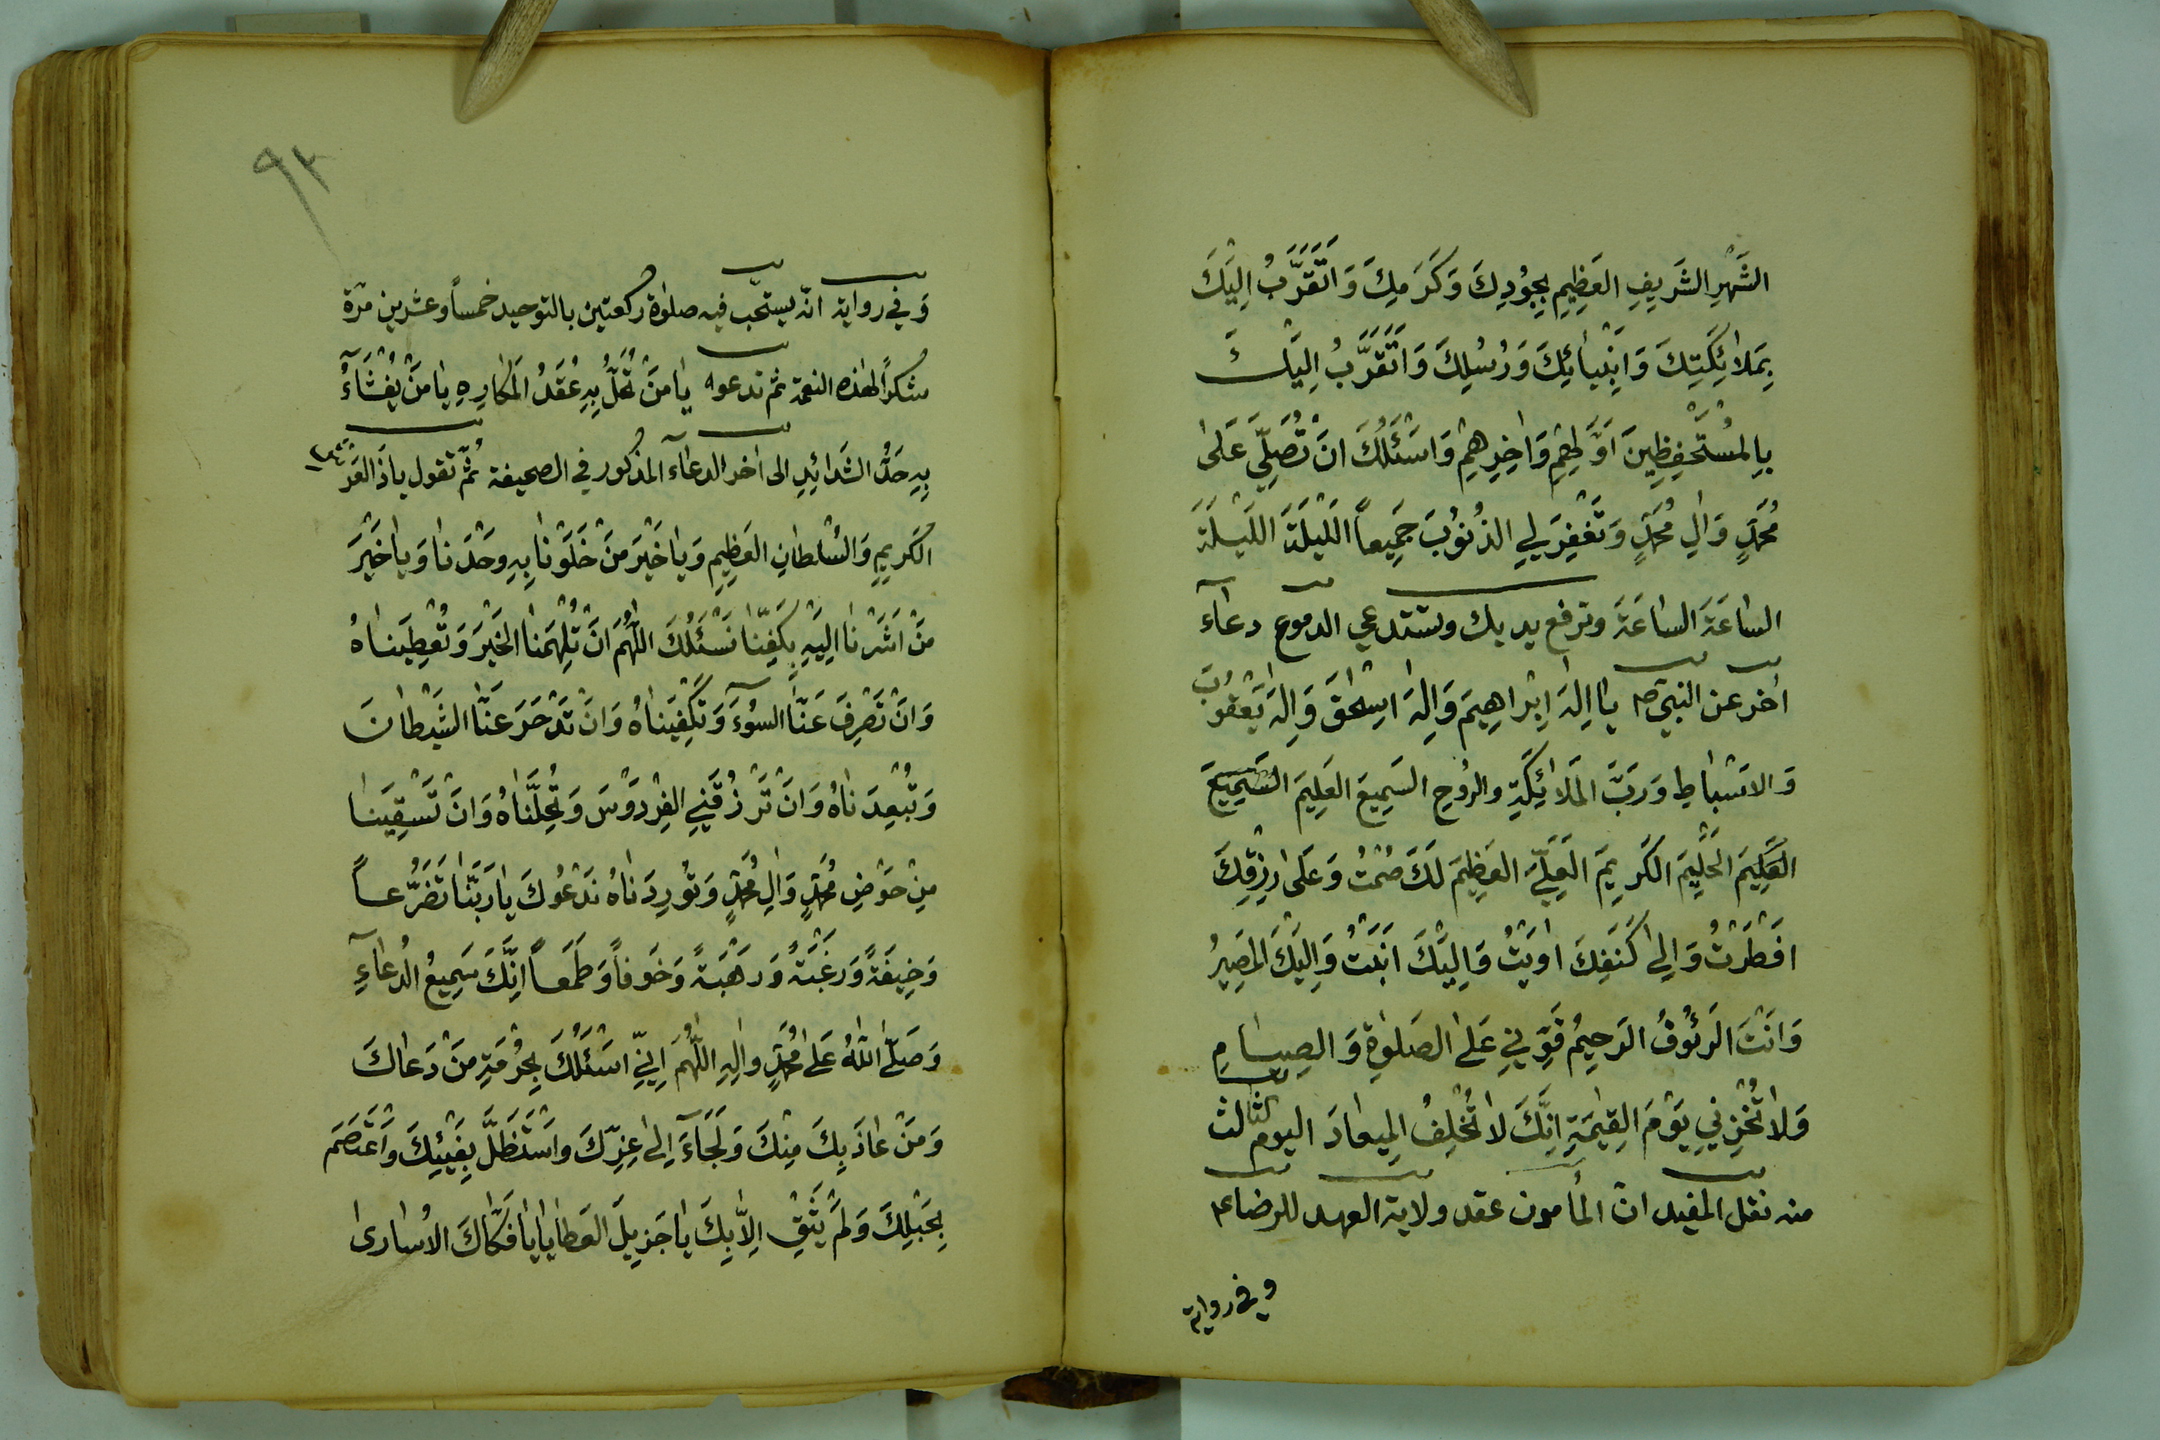 الشَّهْرِ الشَّرِيفِ العَظِيمِ بِجُوْدِكَ وَكَرَمِكَ وَاَتَقَرَّبُ اِلَيْكَ
بِمَلاٰئِكَتِكَ وَاَنْبِيٰائِكَ وَرُسُلِكَ وَاَتَقَرَّبُ اِلَيْكَ
بِالمُسْتَحْفِظِينَ اَوَّلِهِمِ وَاٰخِرِهِمِ وَاَسْئَلُكَ اَنْ تُصَلِّيَ عَلىٰ
مُحَمَّدٍ وَاٰلِ مُحَمَّدٍ وَتَغْفِرَ لِي الذُنُوْبَ جَمِيعاً اللَيْلَةَ اللَيْلَةَ
السٰاعَةَ السٰاعَةَ وترفع يديك وتستدعي الدموع دعآء
اٰخر عن النبيّ ص يٰا اِلٰهَ اِبْرٰاهِيمَ وَاِلٰهَ اِسْحٰقَ وَاِلٰهَ يَعْقُوْبَ
وَالاَسْبٰاطِ وَرَبَّ المَلاٰئِكَةِ والرُوْحِ السَمِيعَ العَلِيمَ السَمِيعَ
العَلِيمَ الحَلِيمَ الكَرِيمَ العَلِيَّ العَظِيمَ لَكَ صُمْتُ وَعَلىٰ رِزْقِكَ
اَفْطَرْتُ وَاِلىٰ كَنَفِكَ اَوَيْتُ وَاِلَيْكَ اَنَبْتُ وَاِلَيْكَ المَصِيرُ
وَاَنْتَ الرَئُوْفُ الرَحِيمُ قَوِّنِي عَلىٰ الصَلوٰةِ وَالصِيٰامِ
وَلاٰ تُخْزِنِي يَوْمَ القِيٰمَةِ اِنَّكَ لاٰ تُخْلِفُ المِيعٰادَ اليوم الثالث
منه نقل المفيد انّ المأمون عقد ولاية العهد للرضا ع
وفي رواية
٩٣
وَفي رواية انّه يستحّب فيه صلوٰة ركعتين بالتوحيد خمساً وعشرين مرّة
شكراً لهٰذه النعمة ثم تدعو به يٰا مَنْ تُحَلُّ بِهِ عُقَدُ المَكٰارِهِ يٰا مَنْ يُفْثَآءُ
بِهِ حَدُّ الشَدٰائِدِ الى اٰخر الدعآء المذكور في الصحيفة ثُمَّ تقول ياذَا العَرْشِ
الكَرِيمِ وَالسُلْطٰانِ العَظِيمِ وَيٰا خَيْرَ مَنْ خَلَوْنٰا بِهِ وَحْدَنٰا وَيٰا خَيْرَ
مَنْ اَشَرْنٰا اِلَيْهِ بِكَفِنّٰا نَسْئَلُكَ اللّٰهُمَّ اَنْ تُلْهِمَنٰا الخَيْرَ وَتُعْطِيَنٰاهُ
وَاَنْ تَصْرِفَ عَنّٰا السُوْءَ وَتَكْفِيَنٰاهُ وَاَنْ تَدْحَرَ عَنّٰا الشَيْطٰانَ
وَتُبْعِدَنٰاهُ وَاَنْ تَرْزُقَنِي الفِرْدَوْسَ وَتُحِلَّنٰاهُ وَاَنْ تَسْقِيَنٰا
مِنْ حَوْضِ مُحَمَّدٍ وَاٰلِ مُحَمَّدٍ وَتُوْرِدَنٰاهُ نَدْعُوكَ يٰا رَبَّنٰا تَضَرُّعاً
وَخِيفَةً وَرَغْبَةً وَرَهْبَةً وَخَوفاً وَطَمَعاً اِنَّكَ سَمِيعُ الدُعٰآءِ
وَصَلَّى اللّٰهُ عَلىٰ مُحَمَّدٍ واٰلِهِ اللّٰهُمَّ اِنِّي اَسْئَلُكَ بِحُرْمَةِ مَنْ دَعٰاكَ
وَمَنْ عٰاذَ بِكَ مِنْكَ وَلَجَآءَ اِلىٰ عِزِّكَ وَاسْتَظَلَّ بِفَيْئِكَ وَاعْتَصَمَ
بِحَبْلِكَ وَلَمْ يَثِقْ اِلاّٰ بِكَ يٰا جَزِيلَ العَطٰايٰا يٰا فَكّٰاكَ الاُسٰارىٰ